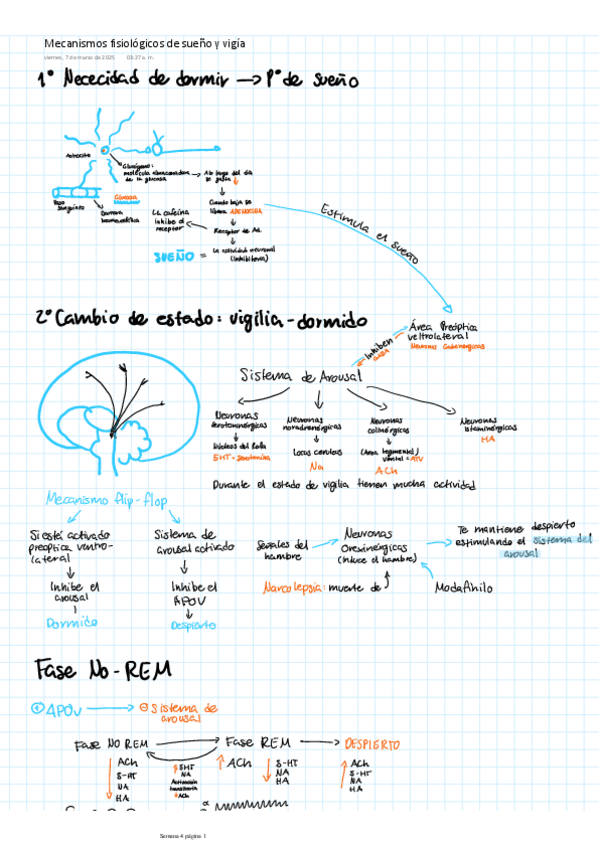 Mecanismos fisiológicos de sueño y vigía
viernes, 7 de marzo de 2025 03:27 a. m.
1° Nececidad de dormir → P° de sueño
Astrocito
Glucógeno:
molécula almacenadora
de la glucosa
A lo largo del día
se gasta ↓
Glucosa
Vaso
sanguíneo
Barrera
hematoencefálica
Cuando baja se
libera ADENOSINA
La cafeína
inhibe el
receptor
Receptor de Ad.
SUEÑO =
La actividad neuronal
(inhibitoria)
Estimula el sueño
2° Cambio de estado: vigilia-dormido
Área Preóptica
veltrolateral
Neuronas Gabaérgicas
Inhiben
GABA
Sistema de Arousal
Neuronas
serotoninérgicas
Núcleos del Rafe
5HT - Serotonina
Neuronas
noradrenérgicas
Locus ceruleus
Na
Neuronas
colinérgicas
(Área tegmental)
ventral = ATV
ACh
Neuronas
histaminérgicas
HA
Durante el estado de vigilia tienen mucha actividad
Mecanismo flip-flop
Si está activado
preoptica ventro-
lateral
Inhibe el
arousal
Dormido
Sistema de
arousal activado
Inhibe el
APOV
Despierto
Señales del
hambre
Neuronas
Orexinérgicas
(induce el hambre)
Te mantiene despierto
estimulando el sistema del
arousal
Narcolepsia: muerte de
Modafinilo
Fase No-REM
① APOV → ⊖ Sistema de
arousal
Fase NO REM
Fase REM → DESPIERTO
↓ ACh
5-HT
NA
HA
↑ 5HT
NA
↓ ACh
↑ ACh
↓ 5-HT
NA
HA
↑ ACh
5-HT
NA
HA
Semana 4 página 1